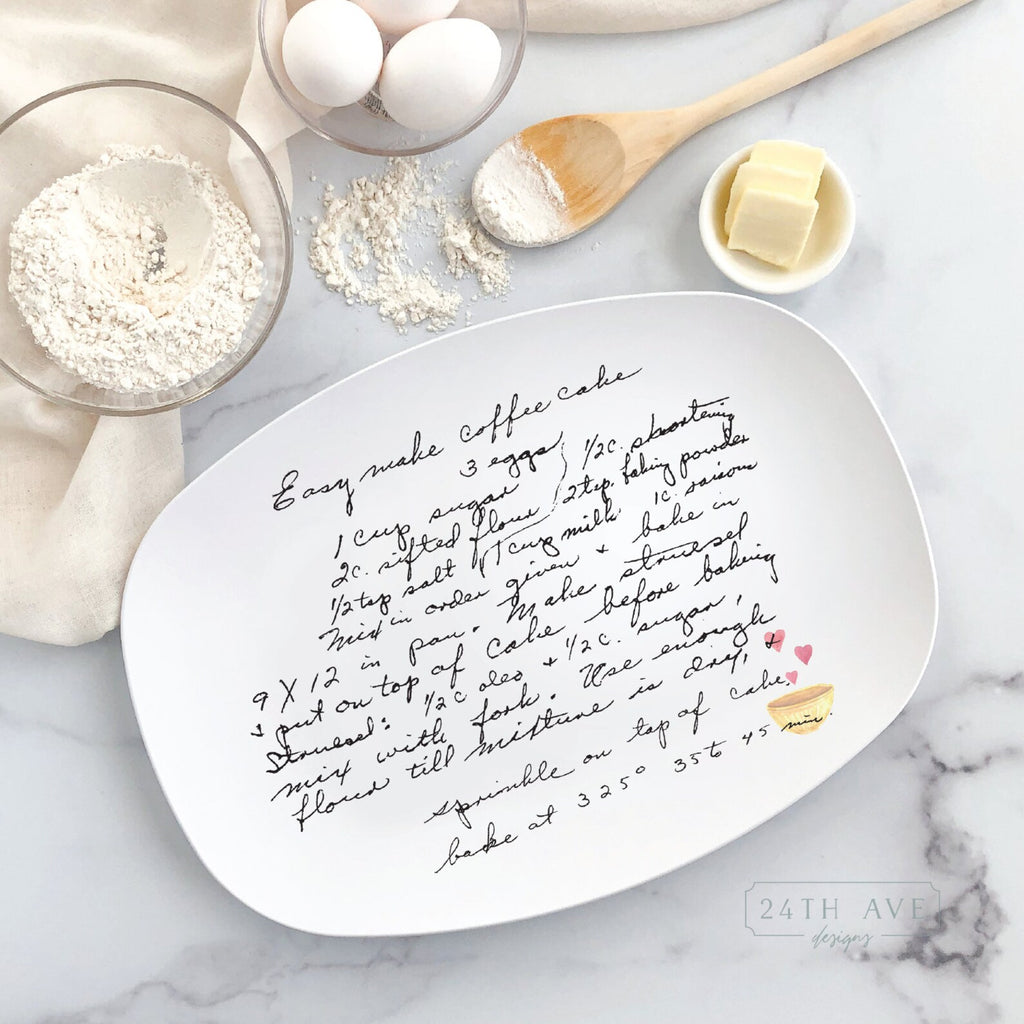 Easy make coffee cake
3 eggs 1/2 c. shortening
1 cup sugar 2 tsp. baking powder
2c. sifted flour 1c. raisons
1/2 tsp salt 1 cup milk
Mix in order given + bake in
9 X 12 in pan. Make struesel
+ put on top of cake before baking
Struesel: 1/2 c oleo + 1/2 c. sugar,
mix with fork. Use enough
flour till mixture is dry, +
sprinkle on top of cake.
bake at 325° 35 to 45 min.
24TH AVE
designs